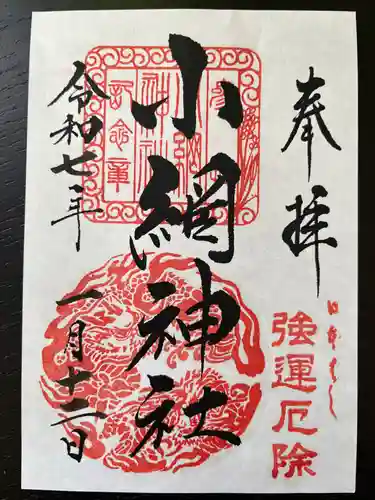 奉拝
日本ばし
強運厄除
小網神社
令和七年
一月十二日